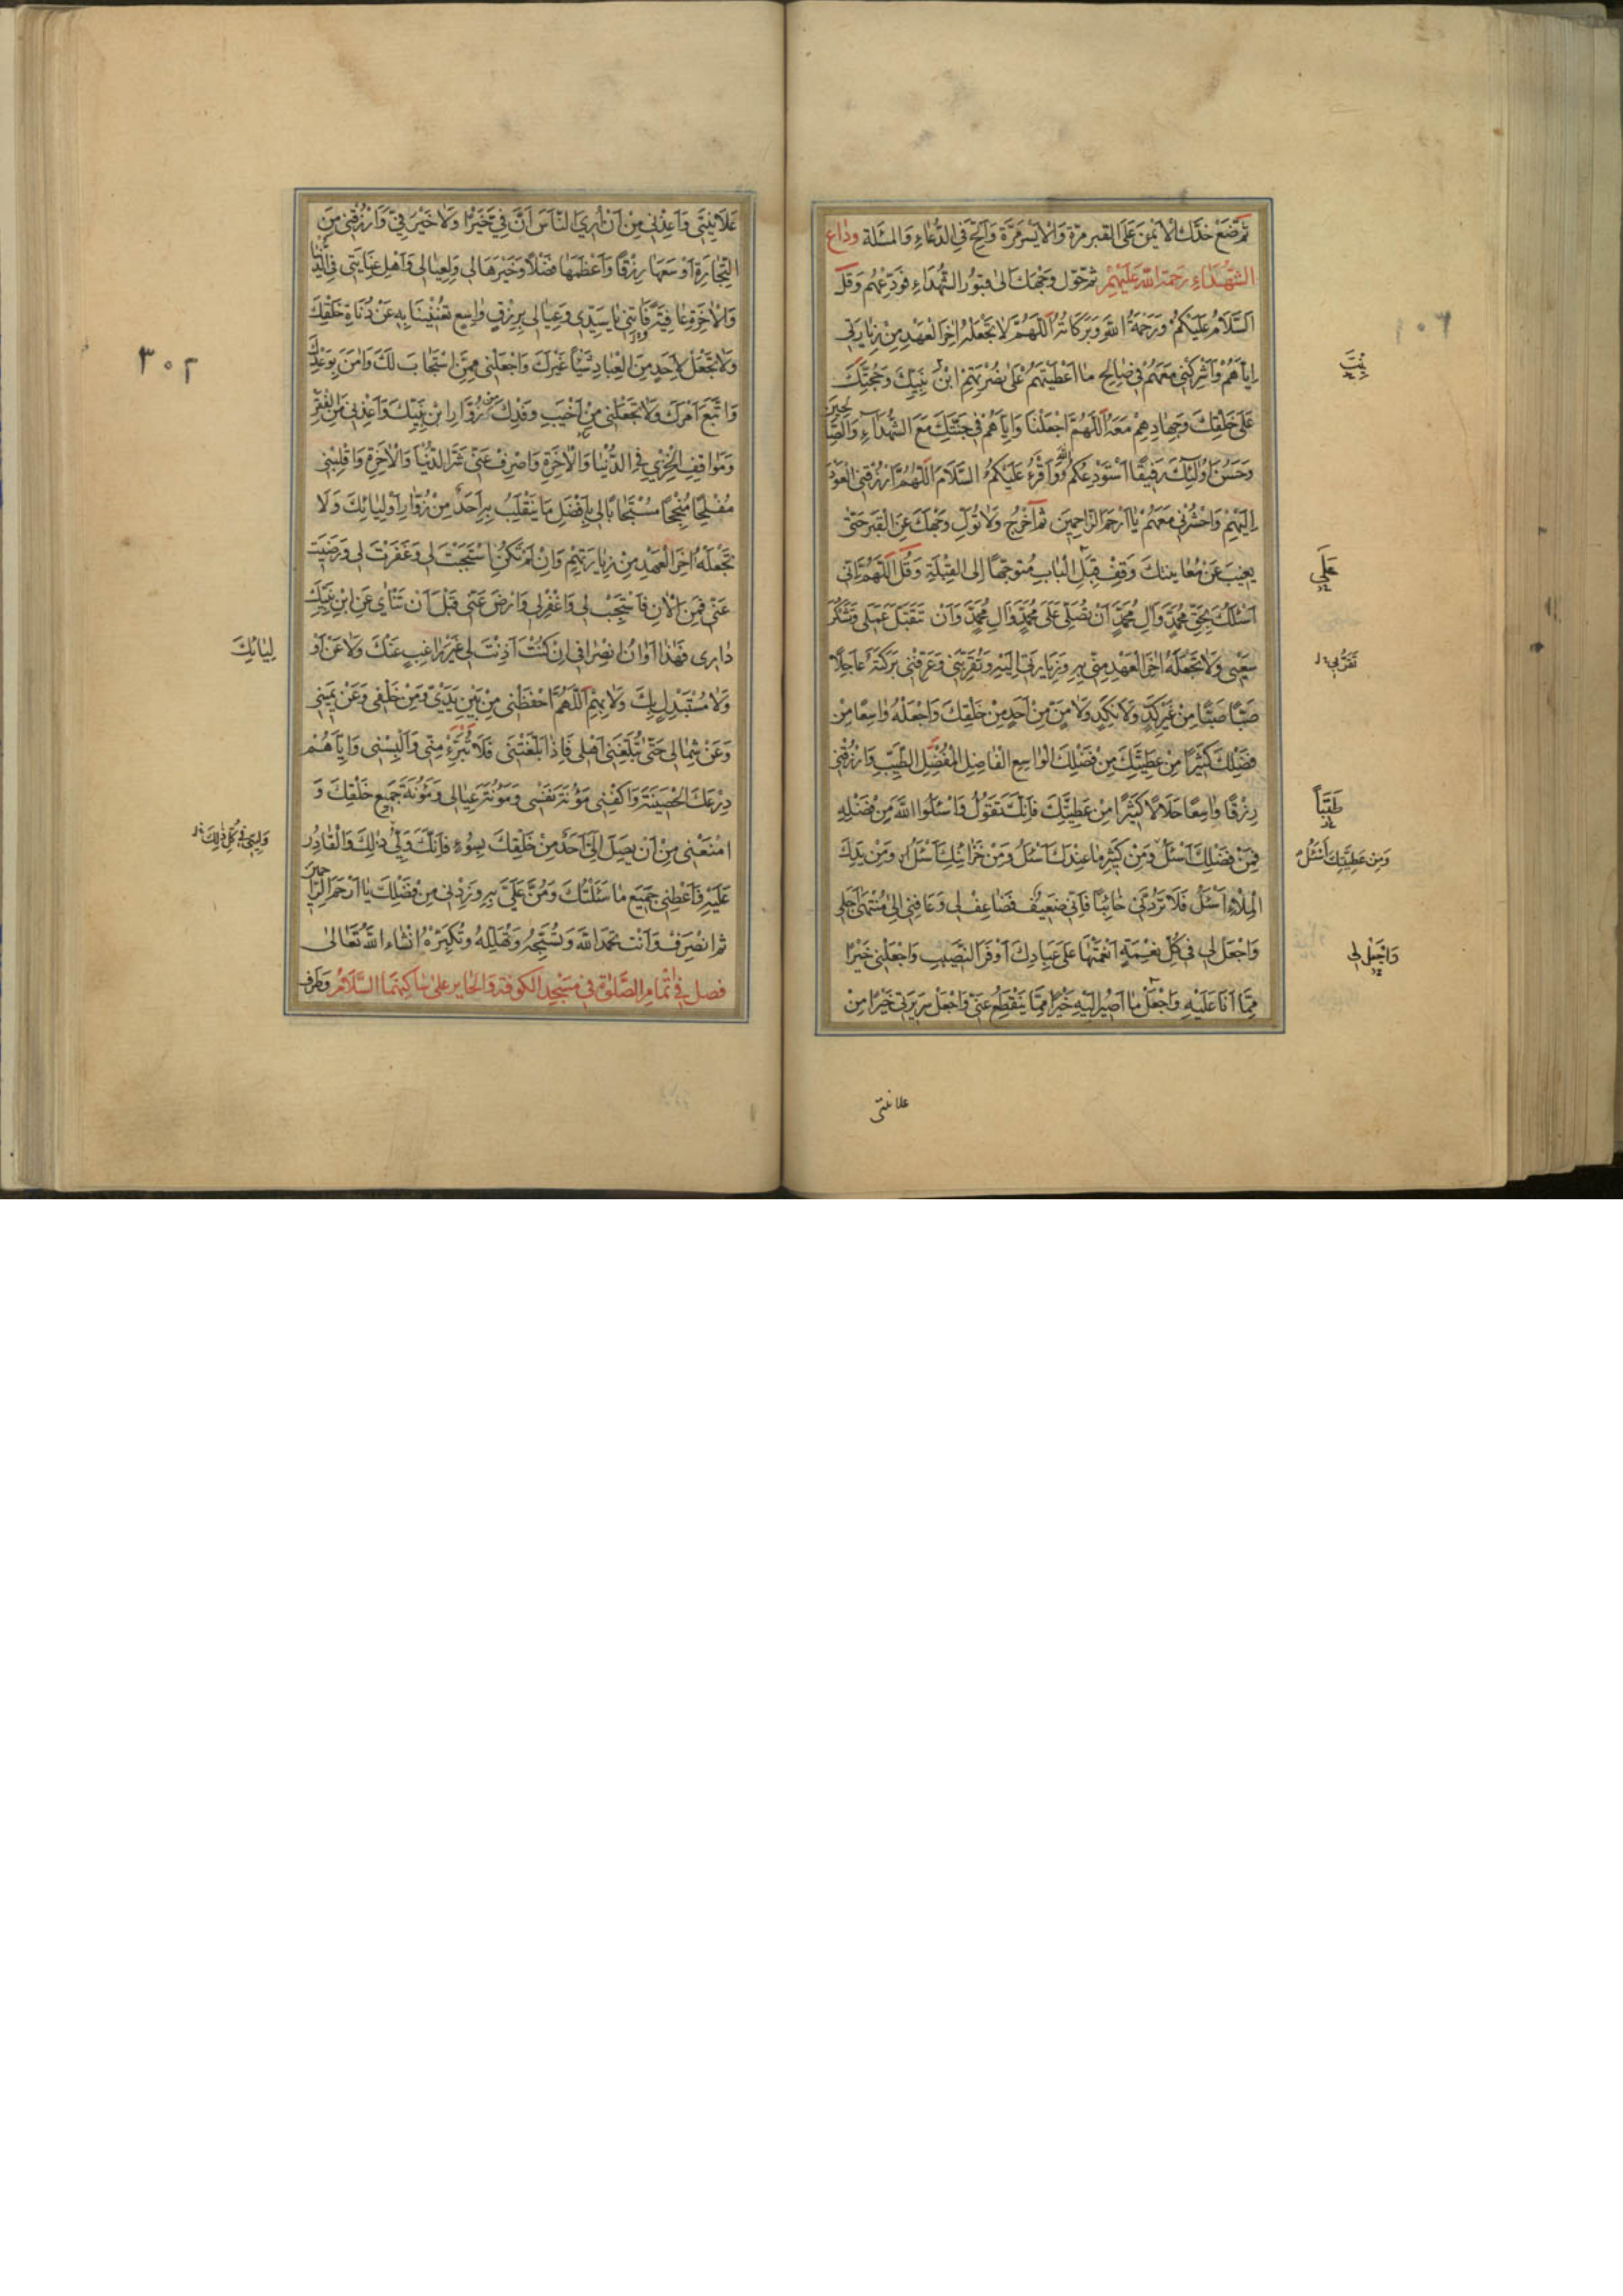 ثم ضع خدك الايمن على القبر مرة والايسر مرة والح في الدعاء والمسئلة وداع
الشهداء رحمة الله عليهم ثم حول وجهك الى قبور الشهداء فودعهم وقل
السلام عليكم ورحمة الله وبركاته اللهم لا تجعله اخر العهد من زيارتي
اياهم واشركني معهم في صالح ما اعطيتهم على نصرتهم ابن نبيك وحجتك
بنت
على خلقك وجهادهم معه اللهم اجعلنا واياهم في جنتك مع الشهداء والصالحين
وحسن اولئك رفيقا استودعكم الله واقرء عليكم السلام اللهم ارزقني العود
اليهم واحشرني معهم يا ارحم الراحمين ثم اخرج ولا تول وجهك عن القبر حتى
يغيب عن معاينتك وقف قبل الباب متوجها الى القبلة وقل اللهم اني
على
اسئلك بحق محمد وال محمد ان تصلي على محمد وال محمد وان تتقبل عملي وتشكر
سعيي ولا تجعله اخر العهد مني به وزيارتي اليه وتقربني وعرفني بركته عاجلا
صبا صبا من غير كد ولا نكد ولا من من احد من خلقك واجعله واسعا من
فضلك كثيرا من عطيتك من فضلك الواسع الفاضل المفضل الطيب وارزقني
رزقا واسعا حلالا كثيرا من عطيتك فانك تقول واسئلوا الله من فضله
طيبا
فمن فضلك اسئل ومن كثير ما عندك اسئل ومن خزائنك اسئل ومن يدك
ومن عطيتك اسئل
الملاء اسئل فلا تردني خائبا فاني ضعيف فضاعف لي وعافني الى منتهى اجلي
واجعل لي في كل نعمة انعمتها على عبادك اوفر النصيب واجعلني خيرا
واجعل لي
مما انا عليه واجعل ما اصير اليه خيرا مما ينقطع عني واجعل سريرتي خيرا من
علانيتي
٣٠٢
علانيتي واعذني من ان اري الناس ان في خيرا ولا خير في وارزقني من
التجارة اوسعها رزقا واعظمها فضلا وخيرها لي ولعيالي واهل عنايتي في الدنيا
والاخرة عافية واتني يا سيدي وعيالي برزق واسع تغنينا به عن دناة خلقك
ولا تجعل لاحد من العباد شيئا غيرك واجعلني ممن استجاب لك وامن بوعدك
واتبع امرك ولا تجعلني من اخيب وفدك من زوار ابن نبيك واعذني من الفقر
ومواقف الخزي في الدنيا والاخرة واصرف عني شر الدنيا والاخرة واقلبني
مفلحا منجحا مستجابا لي بافضل ما ينقلب به احد من زوار اوليائك ولا
تجعله اخر العهد من زيارتهم وان لم تكن استجبت لي وغفرت لي ورضيت
عني فمن الان فاستجب لي واغفر لي وارض عني قبل ان تناي عن ابن نبيك
داري فهذا اوان انصرافي ان كنت اذنت لي غير راغب عنك ولا عن او
ليائك
ولا مستبدل بك ولا بهم اللهم احفظني من بين يدي ومن خلفي وعن يميني
وعن شمالي حتى تبلغني اهلي فاذا بلغتني فلا تبرء مني والبسني واياهم
درعك الحصينة واكفني مؤنة نفسي ومؤنة عيالي ومؤنة جميع خلقك و
امنعني من ان يصل الي احد من خلقك بسوء فانك ولي ذلك والقادر
عليه فاعطني جميع ما سئلتك ومن علي به وزدني من فضلك يا ارحم الراحمين
ثم انصرف وانت تحمد الله وتسبحه وتهلله وتكبره انشاء الله تعالى
فصل في اتمام الصلوة في مسجد الكوفة والحاير على ساكنهما السلام وطرف